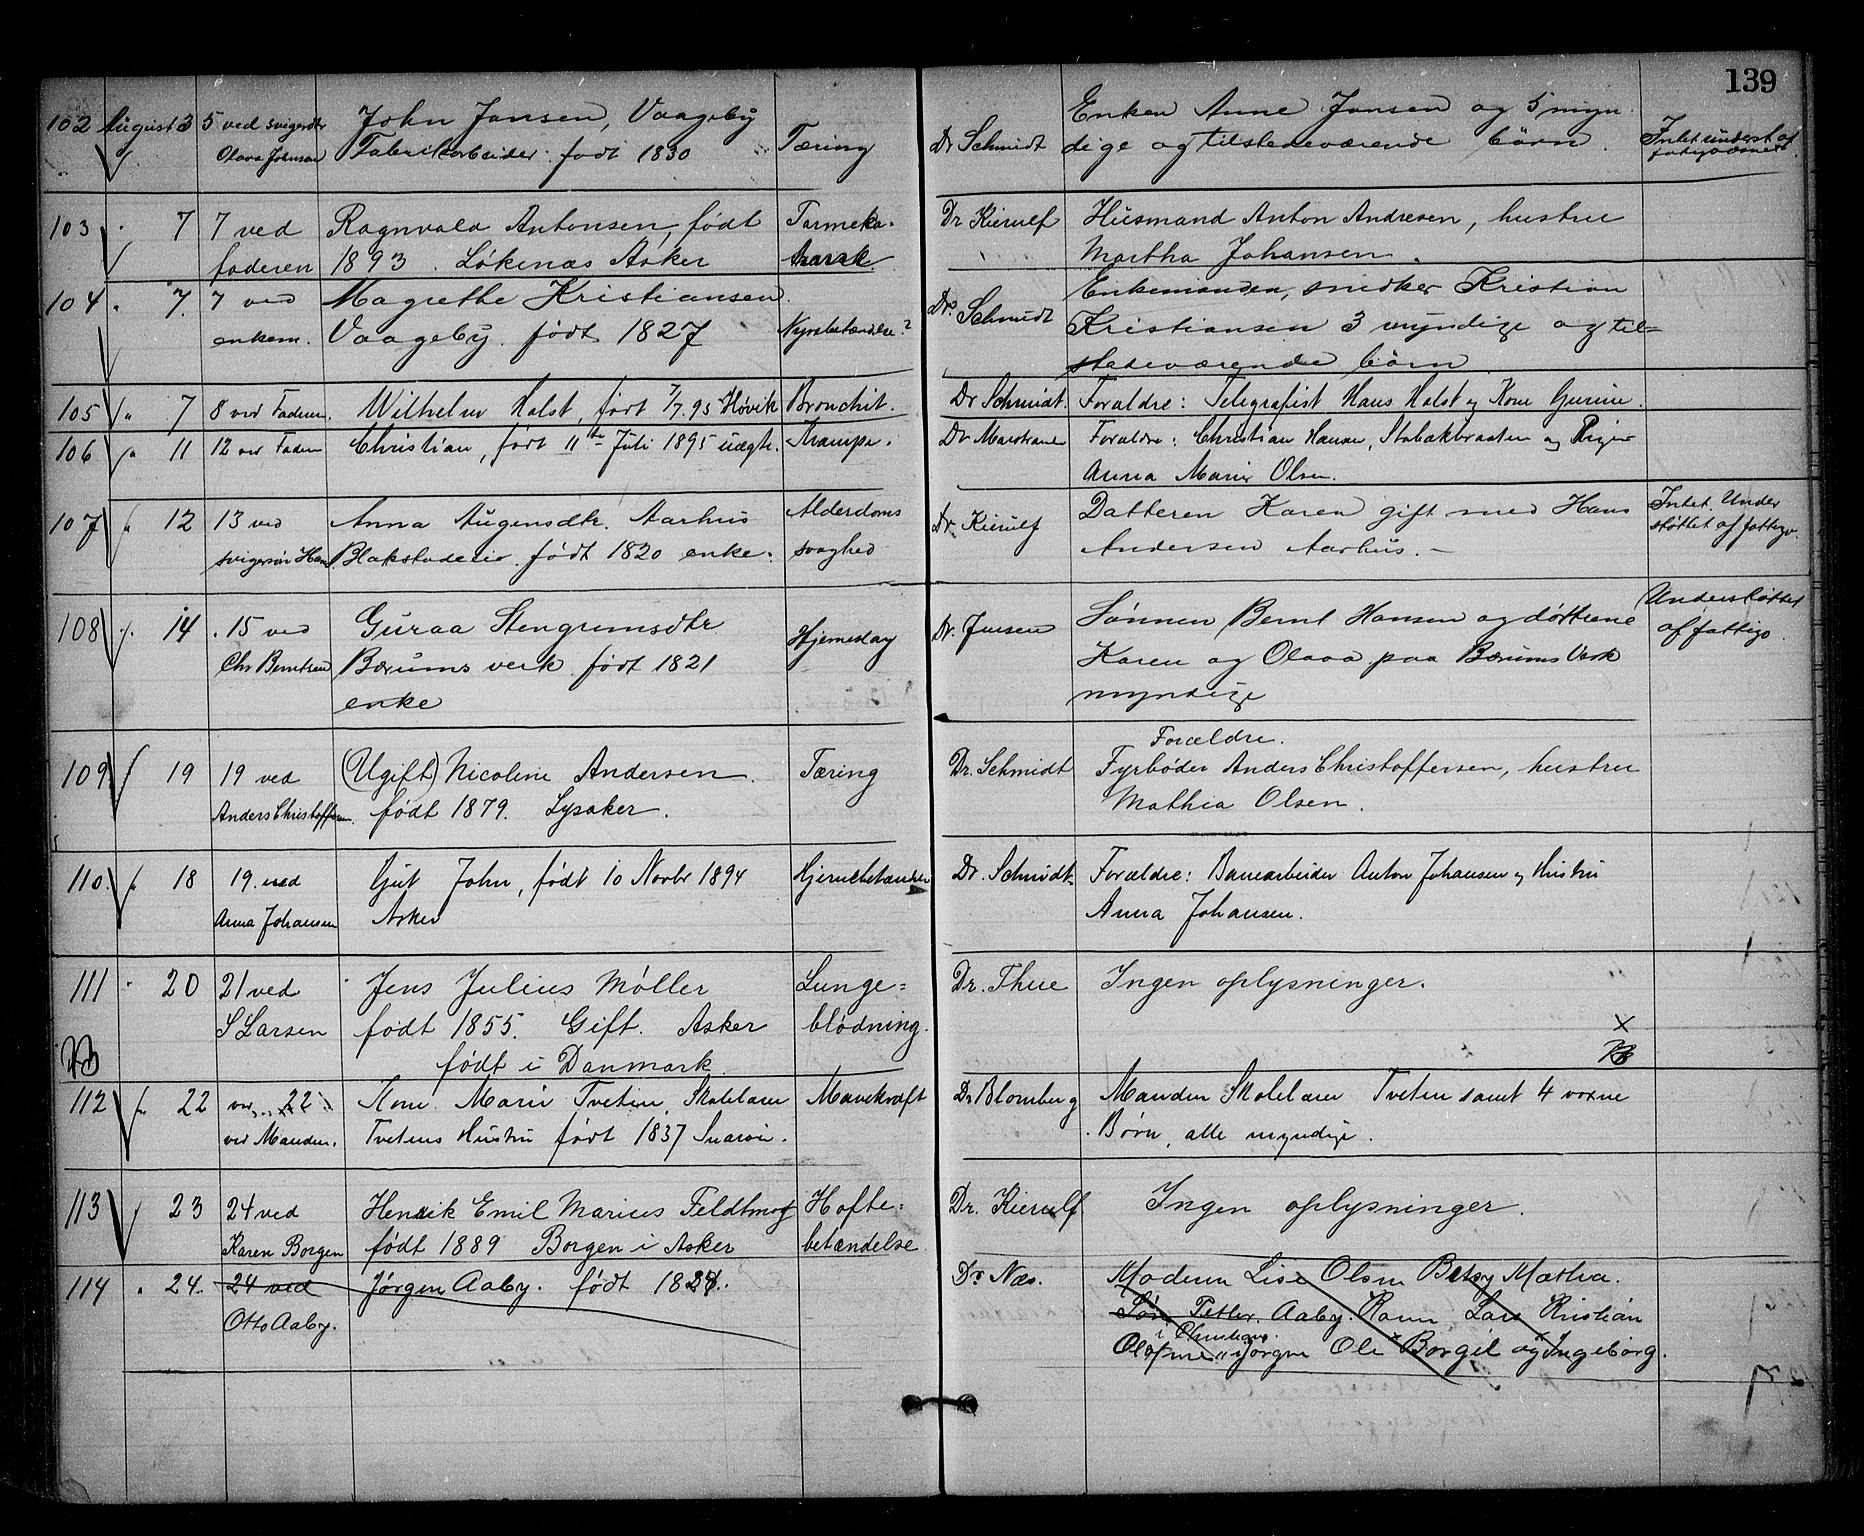 139
102 August 3 5 ved svigerdtr John Jansen, Vaageby Dr Schmidt Enken Anne Jansen og 5 myn
Olava Johnsen Fabrikarbeider født 1830 Tæring dige og tilstedeværende börn. Intet underst af
fattigvæsenet
103 7 7 ved Ragnvald Antonsen, født Tarmeka- Dr Kierulf Husmand Anton Andresen, hustru
faderen 1893. Løkenæs Asker Martha Johansen.
104 7. 7 ved Magrethe Kristiansen Dr. Schmidt Enkemanden, snidker Kristian
enkem. Vaageby. født 1827 Nyrebetændelse? Kristiansen 3 myndige og til-
stedeværende börn
105 " 7 8 ved Faderen. Wilhelm Holst, født 7/7.95 Høvik Bronchit. Dr Schmidt. Foraldre: Telegrafist Hans Holst og Kone Gurine.
106 " 11 12 ved Faderen Christian, født 11te Juli 1895 uægte. Krampe. Dr Marstrand Foraldre: Christian Hansen, Stabækbraaten og Pigen
Anna Marie Olsen.
107 " 12 13 ved Anna Augensdtr. Aarhus Alderdoms Dr Kierulf Datteren Karen gift med Hans Intet. Under
svigersön Hans Blakstadeier. født 1820 enke. svaghed Andersen Aarhus. støttet af fattigv.
108 14 15 ved Guraa Stengrimsdtr Hjerneslag Dr. Jensen Sønnen Bernt Hansen og döttrene Understøttet
Chr Berntsen Bærums verk. født 1821 Karen og Olava paa Bærums Verk af fattigv.
enke myndige
109 19 19 ved (Ugift) Nicoline Andersen. Tæring Dr. Schmidt Forældre.
Fyrbøder Anders Christoffersen, hustru
Anders Christoffersen. født 1879. Lysaker. Mathia Olsen.
110. " 18 19. ved Gut John, født 10 Novbr 1894 Hjernebetændelse Dr. Schmidt Forældre: Banearbeider Anton Johansen og Hustru
Anna Johansen Asker Anna Johansen.
111 " 20 21 ved Jens Julius Møller Lunge= Dr. Thue Ingen oplysninger.
S Larsen født 1855. Gift. Asker blödning. X
NB født i Danmark. NB
112 " 22 22 Kone Marie Tveten, Skolelærer Mavekræft Dr Blomberg Manden Skolelærer Tveten samt 4 voxne
ved Manden. Tvetens Hustru født 1837 Snarøi. Børn, alle myndige.
113 " 23 24 ved Henrik Emil Marius Feldtmog Hofte= Dr. Kierulf Ingen oplysninger.
Karen Borgen født 1889 Borgen i Asker betændelse.
114 " 24. 24 ved Jørgen Aaby. født 1828. Dr. Næs. Moderen Lise Olsen Betsy Mathea.
Otto Aaby. Petter Aaby. Karen Lars Kristian
i Christiania.
Jørgen Ole Borgil og Ingeborg.